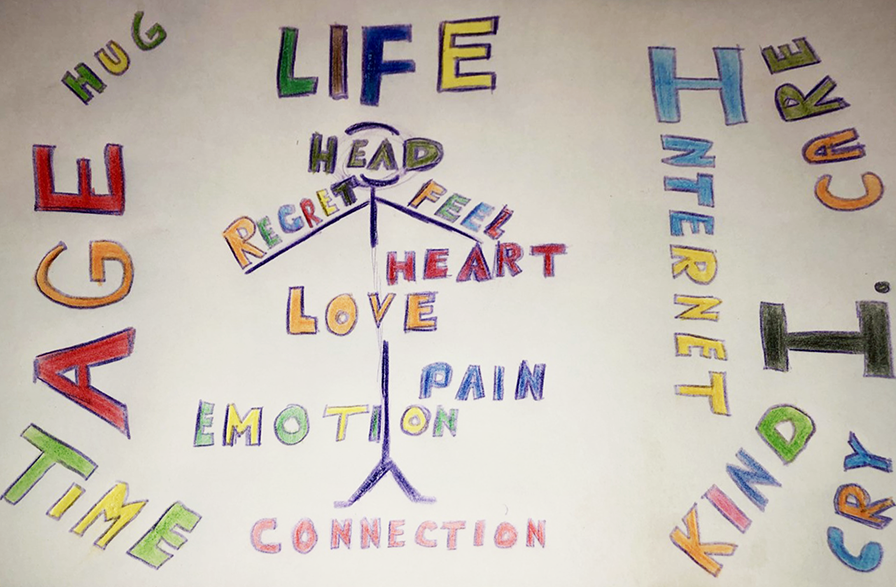 HUG
LIFE
HEAD
REGRET
FEEL
HEART
LOVE
PAIN
EMOTION
CONNECTION
AGE
TIME
INTERNET
CARE
I.
KIND
CRY